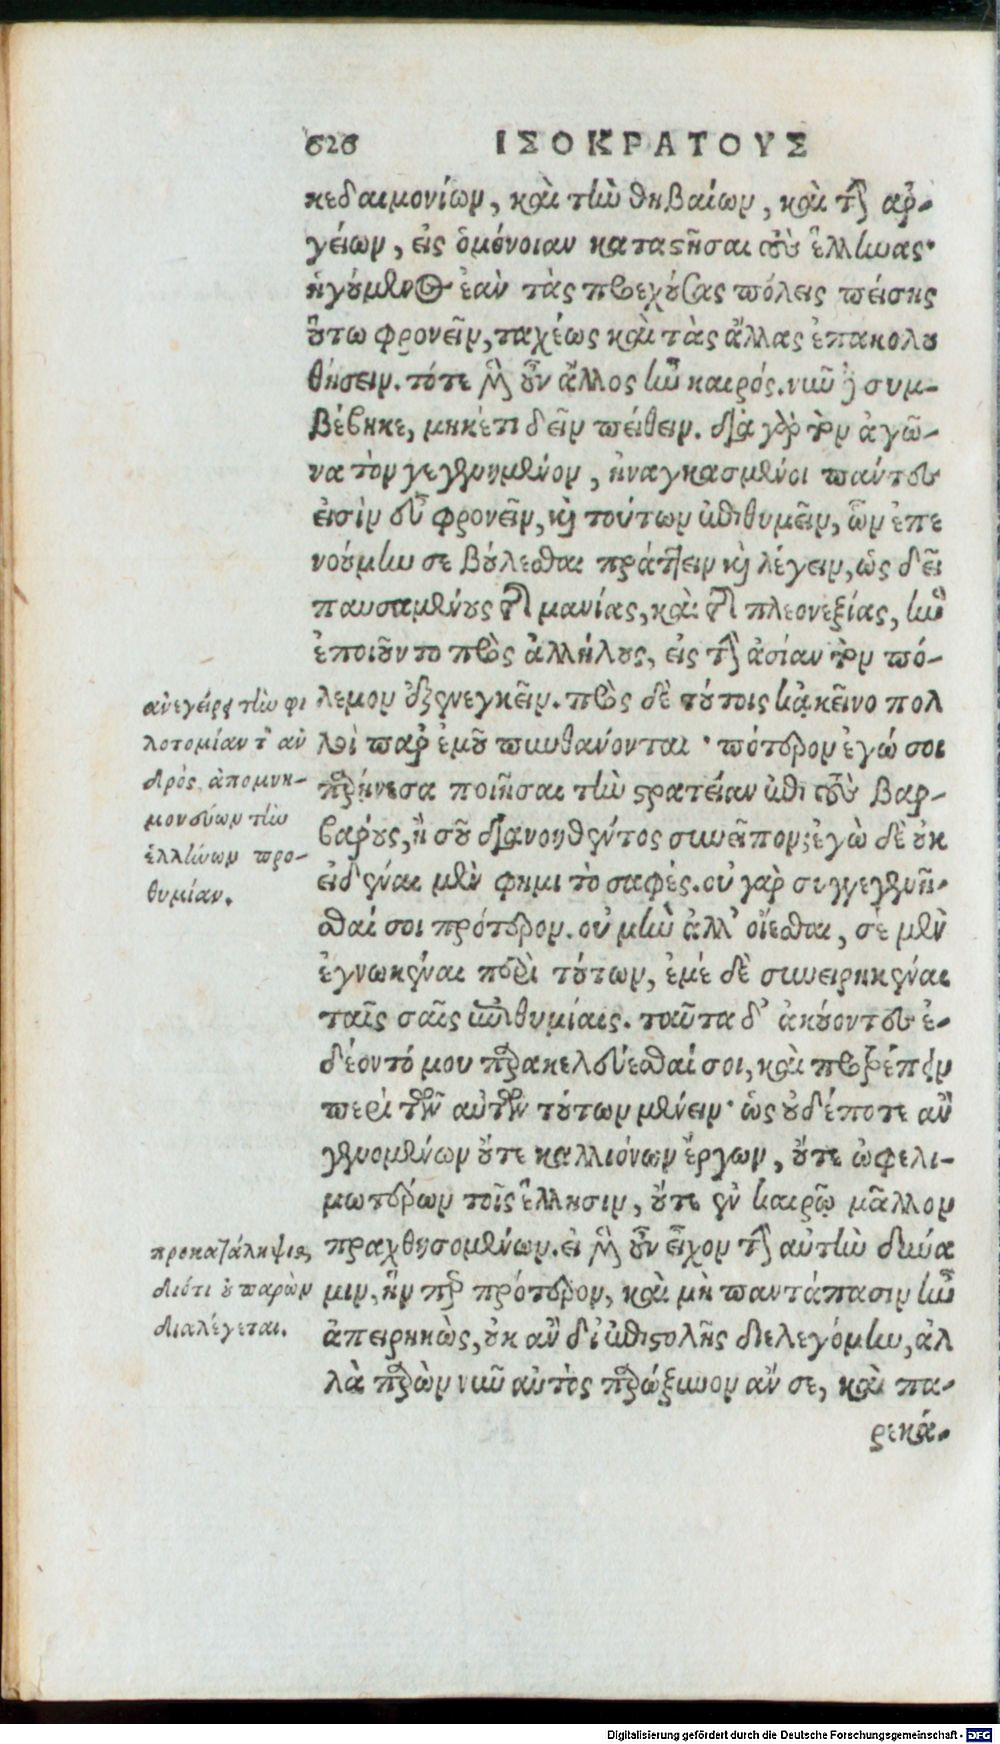 626 ΙΣΟΚΡΑΤΟΥΣ
κεδαιμονίων, καὶ τὴν θηβαίων, καὶ τὴν ἀρ-
γείων, εἰς ὁμόνοιαν καταστῆσαι τοὺς ἕλληνας·
ἡγούμενος ἐὰν τὰς προεχούσας πόλεις πείσῃς
οὕτω φρονεῖν, ταχέως καὶ τὰς ἄλλας ἐπακολου
θήσειν. τότε μὲν οὖν ἄλλος ἦν καιρός. νῦν δὲ συμ-
βέβηκε, μηκέτι δεῖν πείθειν. διὰ γὰρ τὸν ἀγῶ-
να τὸν γεγενημένον, ἠναγκασμένοι πάντες
εἰσὶν εὖ φρονεῖν, καὶ τούτων ἐπιθυμεῖν, ὧν ἐπε
νοούμην σε βούλεσθαι πράττειν καὶ λέγειν, ὡς δεῖ
παυσαμένους τῆς μανίας, καὶ τῆς πλεονεξίας, ἣν
ἐποιοῦντο πρὸς ἀλλήλους, εἰς τὴν ἀσίαν τὸν πό-
λεμον ἐξενεγκεῖν. πρὸς δὲ τούτοις κἀκεῖνο πολ
λοὶ παρ' ἐμοῦ πυνθάνονται· πότερον ἐγώ σοι
παρῄνεσα ποιῆσαι τὴν στρατείαν ἐπὶ τοὺς βαρ-
βάρους, ἢ σοῦ διανοηθέντος συνεῖπον; ἐγὼ δὲ οὐκ
εἰδέναι μέν φημι τὸ σαφές. οὐ γὰρ συγγεγενῆ-
σθαί σοι πρότερον. οὐ μὴν ἀλλ' οἴεσθαι, σὲ μὲν
ἐγνωκέναι περὶ τούτων, ἐμὲ δὲ συνειρηκέναι
ταῖς σαῖς ἐπιθυμίαις. ταῦτα δ' ἀκούοντες ἐ-
δέοντό μου παρακελεύεσθαί σοι, καὶ προτρέπειν
περὶ τῶν αὐτῶν τούτων μένειν· ὡς οὐδέποτε ἂν
γενομένων οὔτε καλλιόνων ἔργων, οὔτε ὠφελι-
μωτέρων τοῖς ἕλλησιν, οὔτε ἐν καιρῷ μᾶλλον
πραχθησομένων. εἰ μὲν οὖν εἶχον τὴν αὐτὴν δύνα
μιν, ἥνπερ πρότερον, καὶ μὴ παντάπασιν ἦν
ἀπειρηκὼς, οὐκ ἂν δι' ἐπιστολῆς διελεγόμην, ἀλ
λὰ παρὼν νῦν αὐτὸς παρώξυνον ἄν σε, καὶ πα-
ρεκά-
ἀνεγείρει τὴν φι
λοτομίαν τοῦ ἀν
δρός, ἀπομνη-
μονεύων τὴν
ἑλλήνων προ-
θυμίαν.
προκατάληψις,
διότι οὐ παρὼν
διαλέγεται.
Digitalisierung gefördert durch die Deutsche Forschungsgemeinschaft - DFG